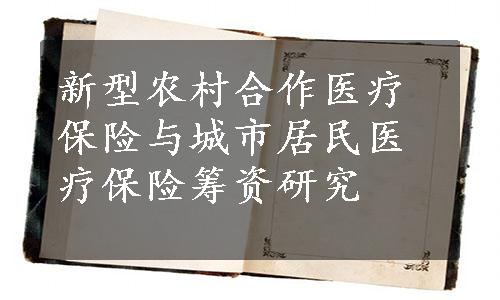 新型农村合作医疗
保险与城市居民医
疗保险筹资研究